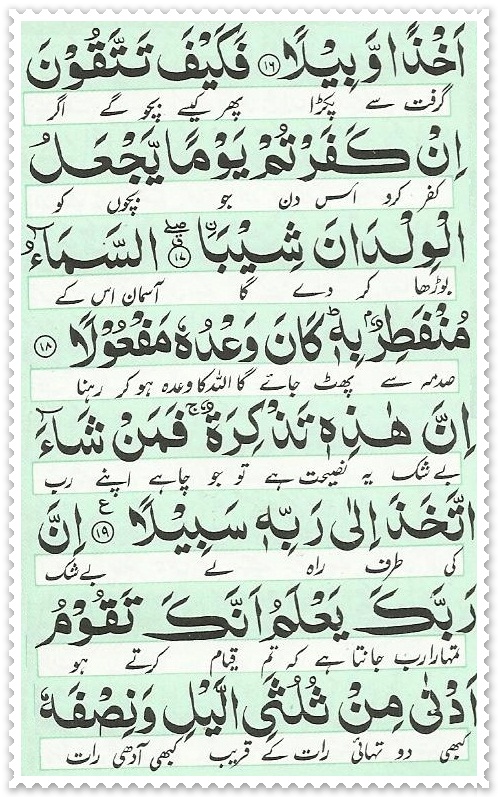 اَخْذًا وَّبِيْلًا ﴿۱۶﴾ فَكَيْفَ تَتَّقُوْنَ
گرفت سے پکڑا پھر کیسے بچو گے اگر
اِنْ كَفَرْتُمْ يَوْمًا يَّجْعَلُ
کفر کرو اس دن جو بچوں کو
الْوِلْدَانَ شِيْبَاۨ ﴿۱۷﴾ السَّمَآءُ
بوڑھا کر دے گا آسمان اس کے
مُنْفَطِرٌۢ بِهٖ ؕ كَانَ وَعْدُهٗ مَفْعُوْلًا ﴿۱۸﴾
صدمہ سے پھٹ جائے گا اللہ کا وعدہ ہو کر رہنا
اِنَّ هٰذِهٖ تَذْكِرَةٌ ۚ فَمَنْ شَآءَ
بے شک یہ نصیحت ہے تو جو چاہے اپنے رب
اتَّخَذَ اِلٰى رَبِّهٖ سَبِيْلًا ﴿۱۹﴾ ع اِنَّ
کی طرف راہ لے بے شک
رَبَّكَ يَعْلَمُ اَنَّكَ تَقُوْمُ
تمہارا رب جانتا ہے کہ تم قیام کرتے ہو
اَدْنٰى مِنْ ثُلُثَيِ الَّيْلِ وَنِصْفَهٗ
کبھی دو تہائی رات کے قریب کبھی آدھی رات